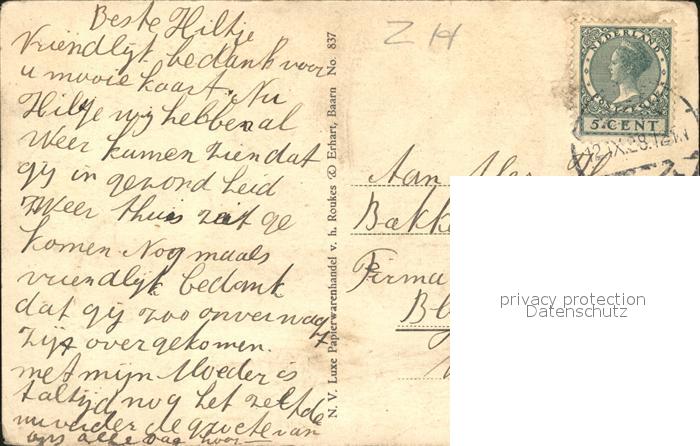 Beste Hiltje
Vriendlijt bedank voor
u mooie kaart. Nu
Hiltje wij hebben al
Weer kunnen zien dat
gij in gezond heid
Weer thuis zeit ge
komen Nog maals
vriendlijk bedank
dat gij zoo onverwagt
Zijt overgekomen.
met mijn Moeder is
taltijd nog het zelfde
nu verder de groete van
ons alle
N. V. Luxe Papierwarenhandel v. h. Roukes & Erhart, Baarn No. 837
Z H
NEDERLAND
POSTZEGEL
5 CENT
12.IX.28.12
Aan
Bakke
Firma
Bl
privacy protection
Datenschutz